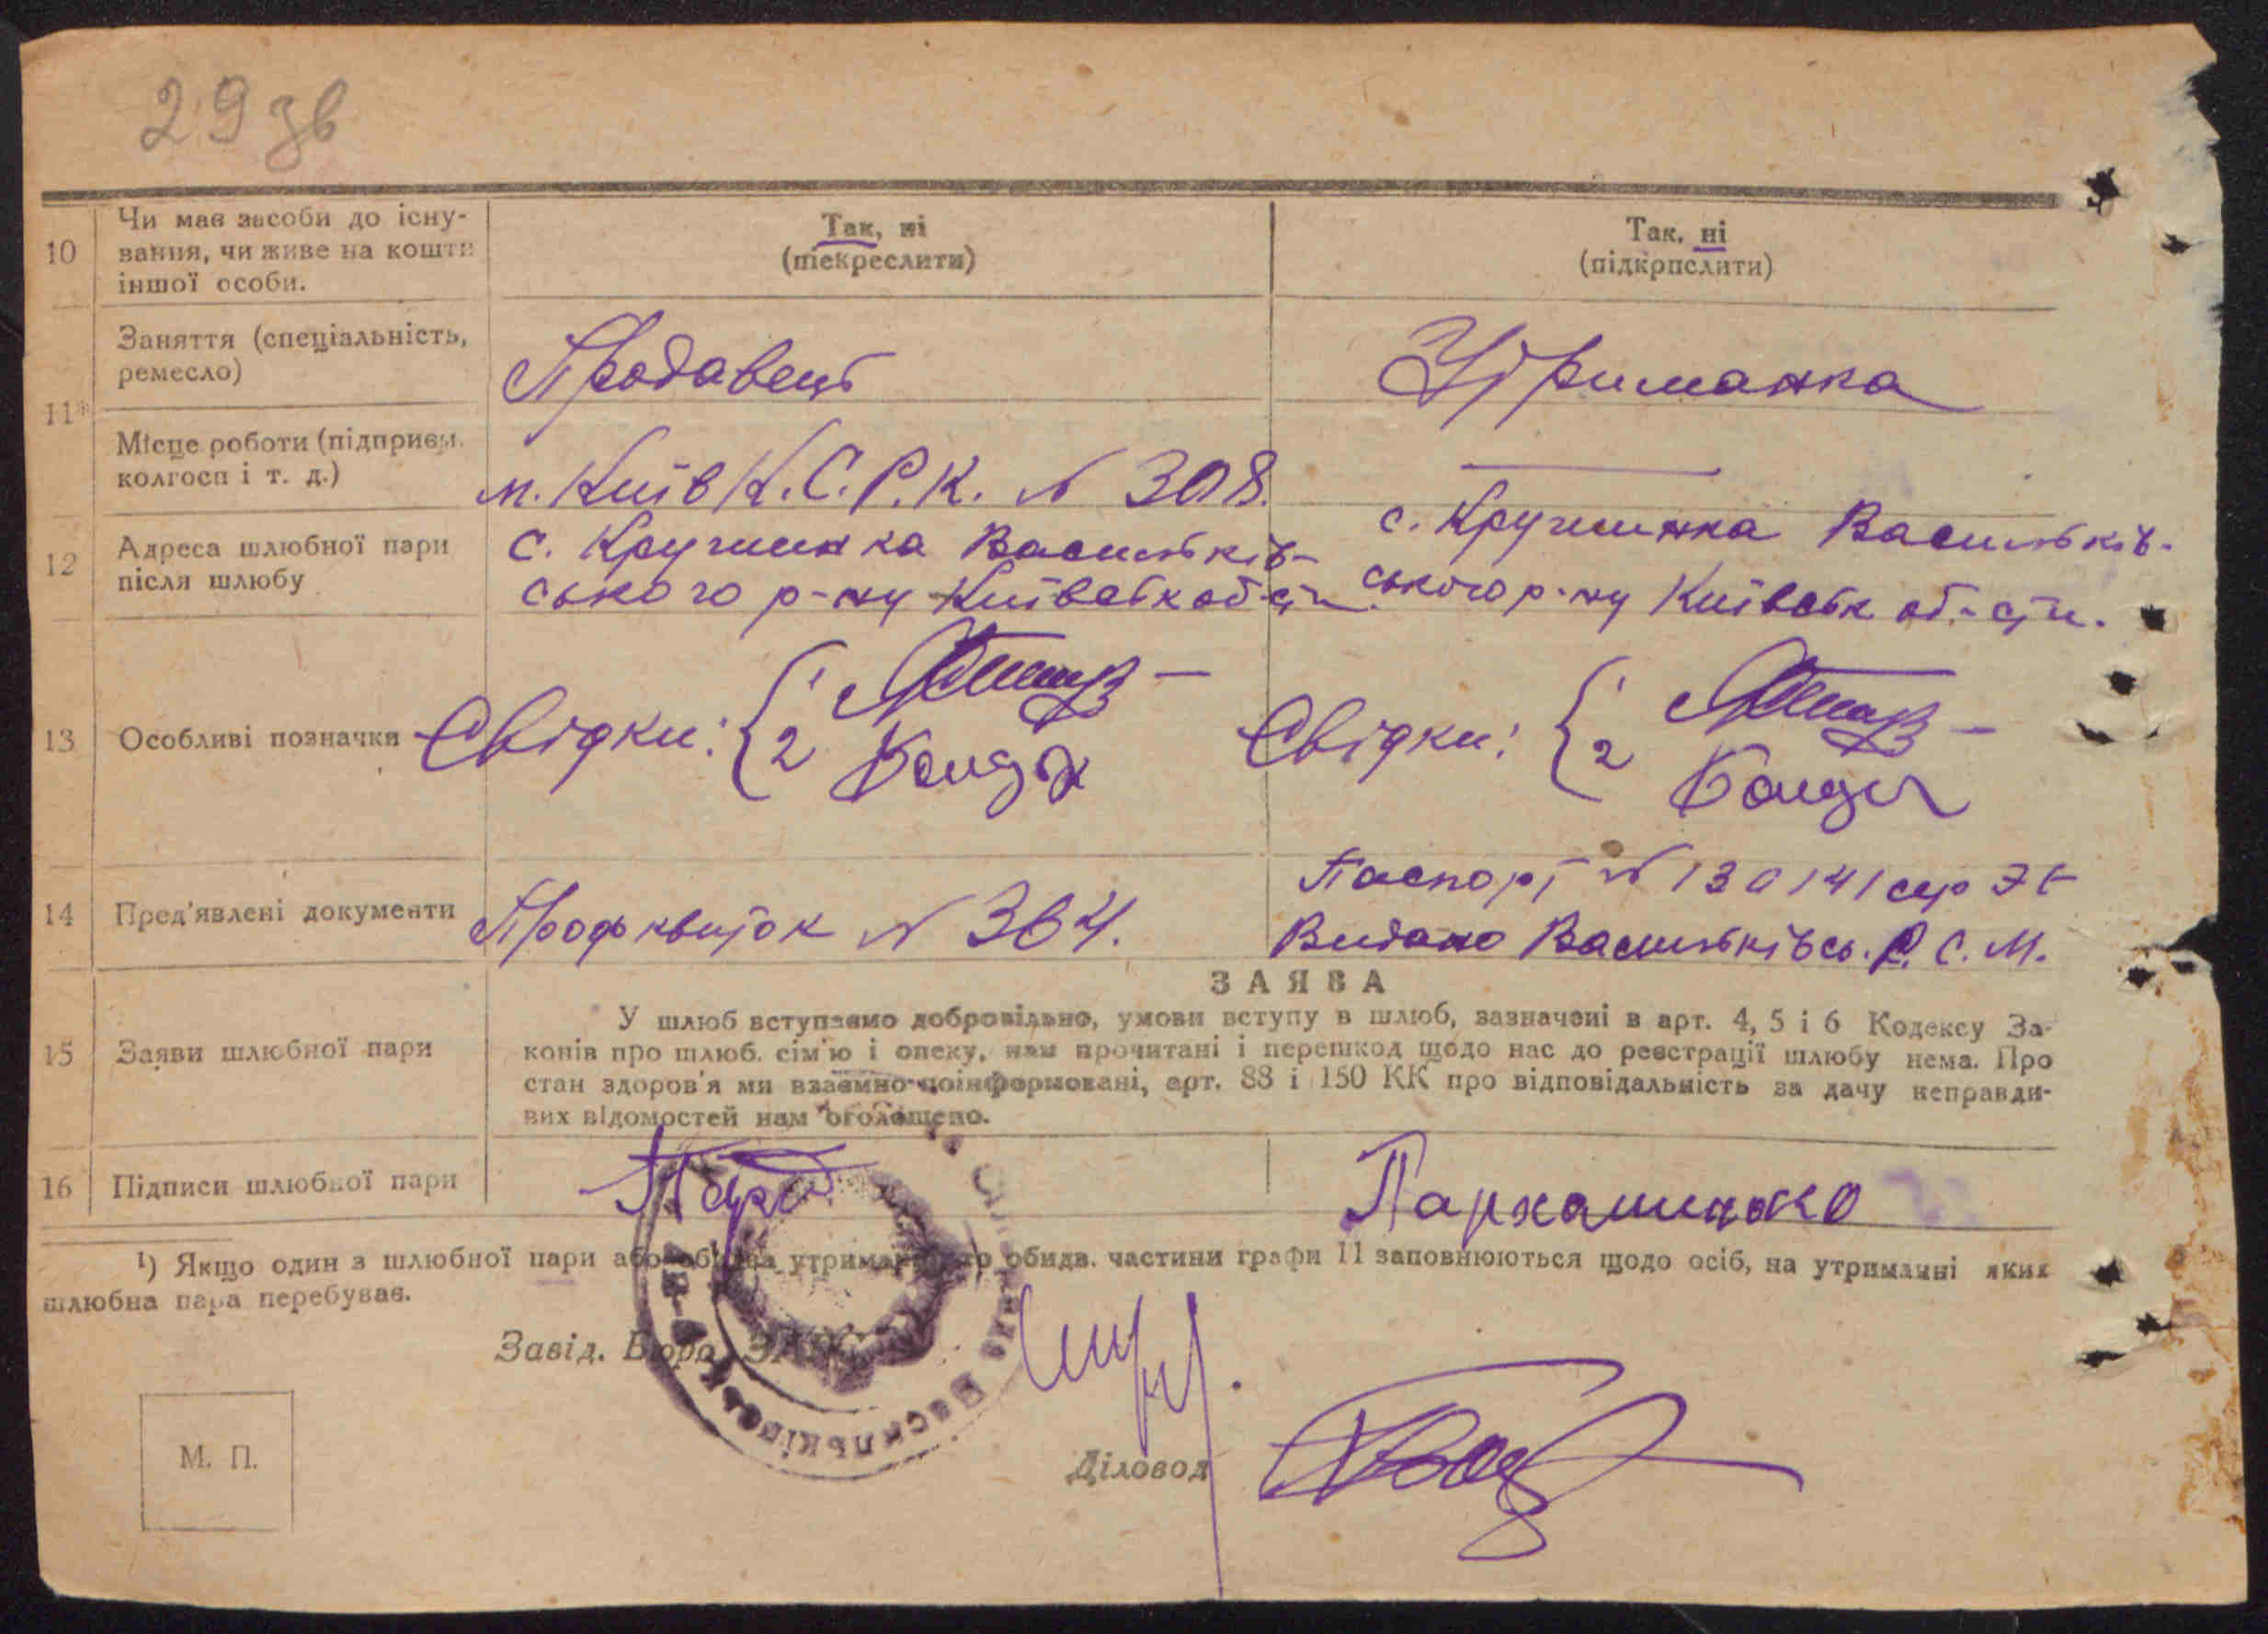 29 зв
10
Чи має засоби до існу-
вання, чи живе на кошти
іншої особи.
Так, ні
(піекреслити)
Так, ні
(підкрпслити)
11*
Заняття (спеціальність,
ремесло)
Продавець
Утриманка
Місце роботи (підприєм.
колгосп і т. д.)
м. Київ К.С.Р.К. № 308.
12
Адреса шлюбної пари
після шлюбу
с. Кругшинка Васильків-
ського р-ну Київськ об-сти
с. Кругшинка Васильків-
ського р-ну Київськ об-сти.
13
Особливі позначки
Свідки: { 1
2
Свідки: { 1
2
14
Пред'явлені документи
Профквиток № 364.
Паспорт № 130141 сер
Видано Васильківсь. Р. С. М.
15
Заяви шлюбної пари
ЗАЯВА
У шлюб вступаємо добровільно, умови вступу в шлюб, зазначені в арт. 4, 5 і 6 Кодексу За-
конів про шлюб. сім'ю і опеку, нам прочитані і перешкод щодо нас до реєстрації шлюбу нема. Про
стан здоров'я ми взаємно поінформовані, арт. 88 і 150 КК про відповідальність за дачу неправди-
вих відомостей нам оголошено.
16
Підписи шлюбної пари
Пархоменко
¹) Якщо один з шлюбної пари або обидва утриманці, то обидв. частини графи 11 заповнюються щодо осіб, на утриманні яких
шлюбна пара перебуває.
Завід. Бюро ЗАГС
Діловод
М. П.